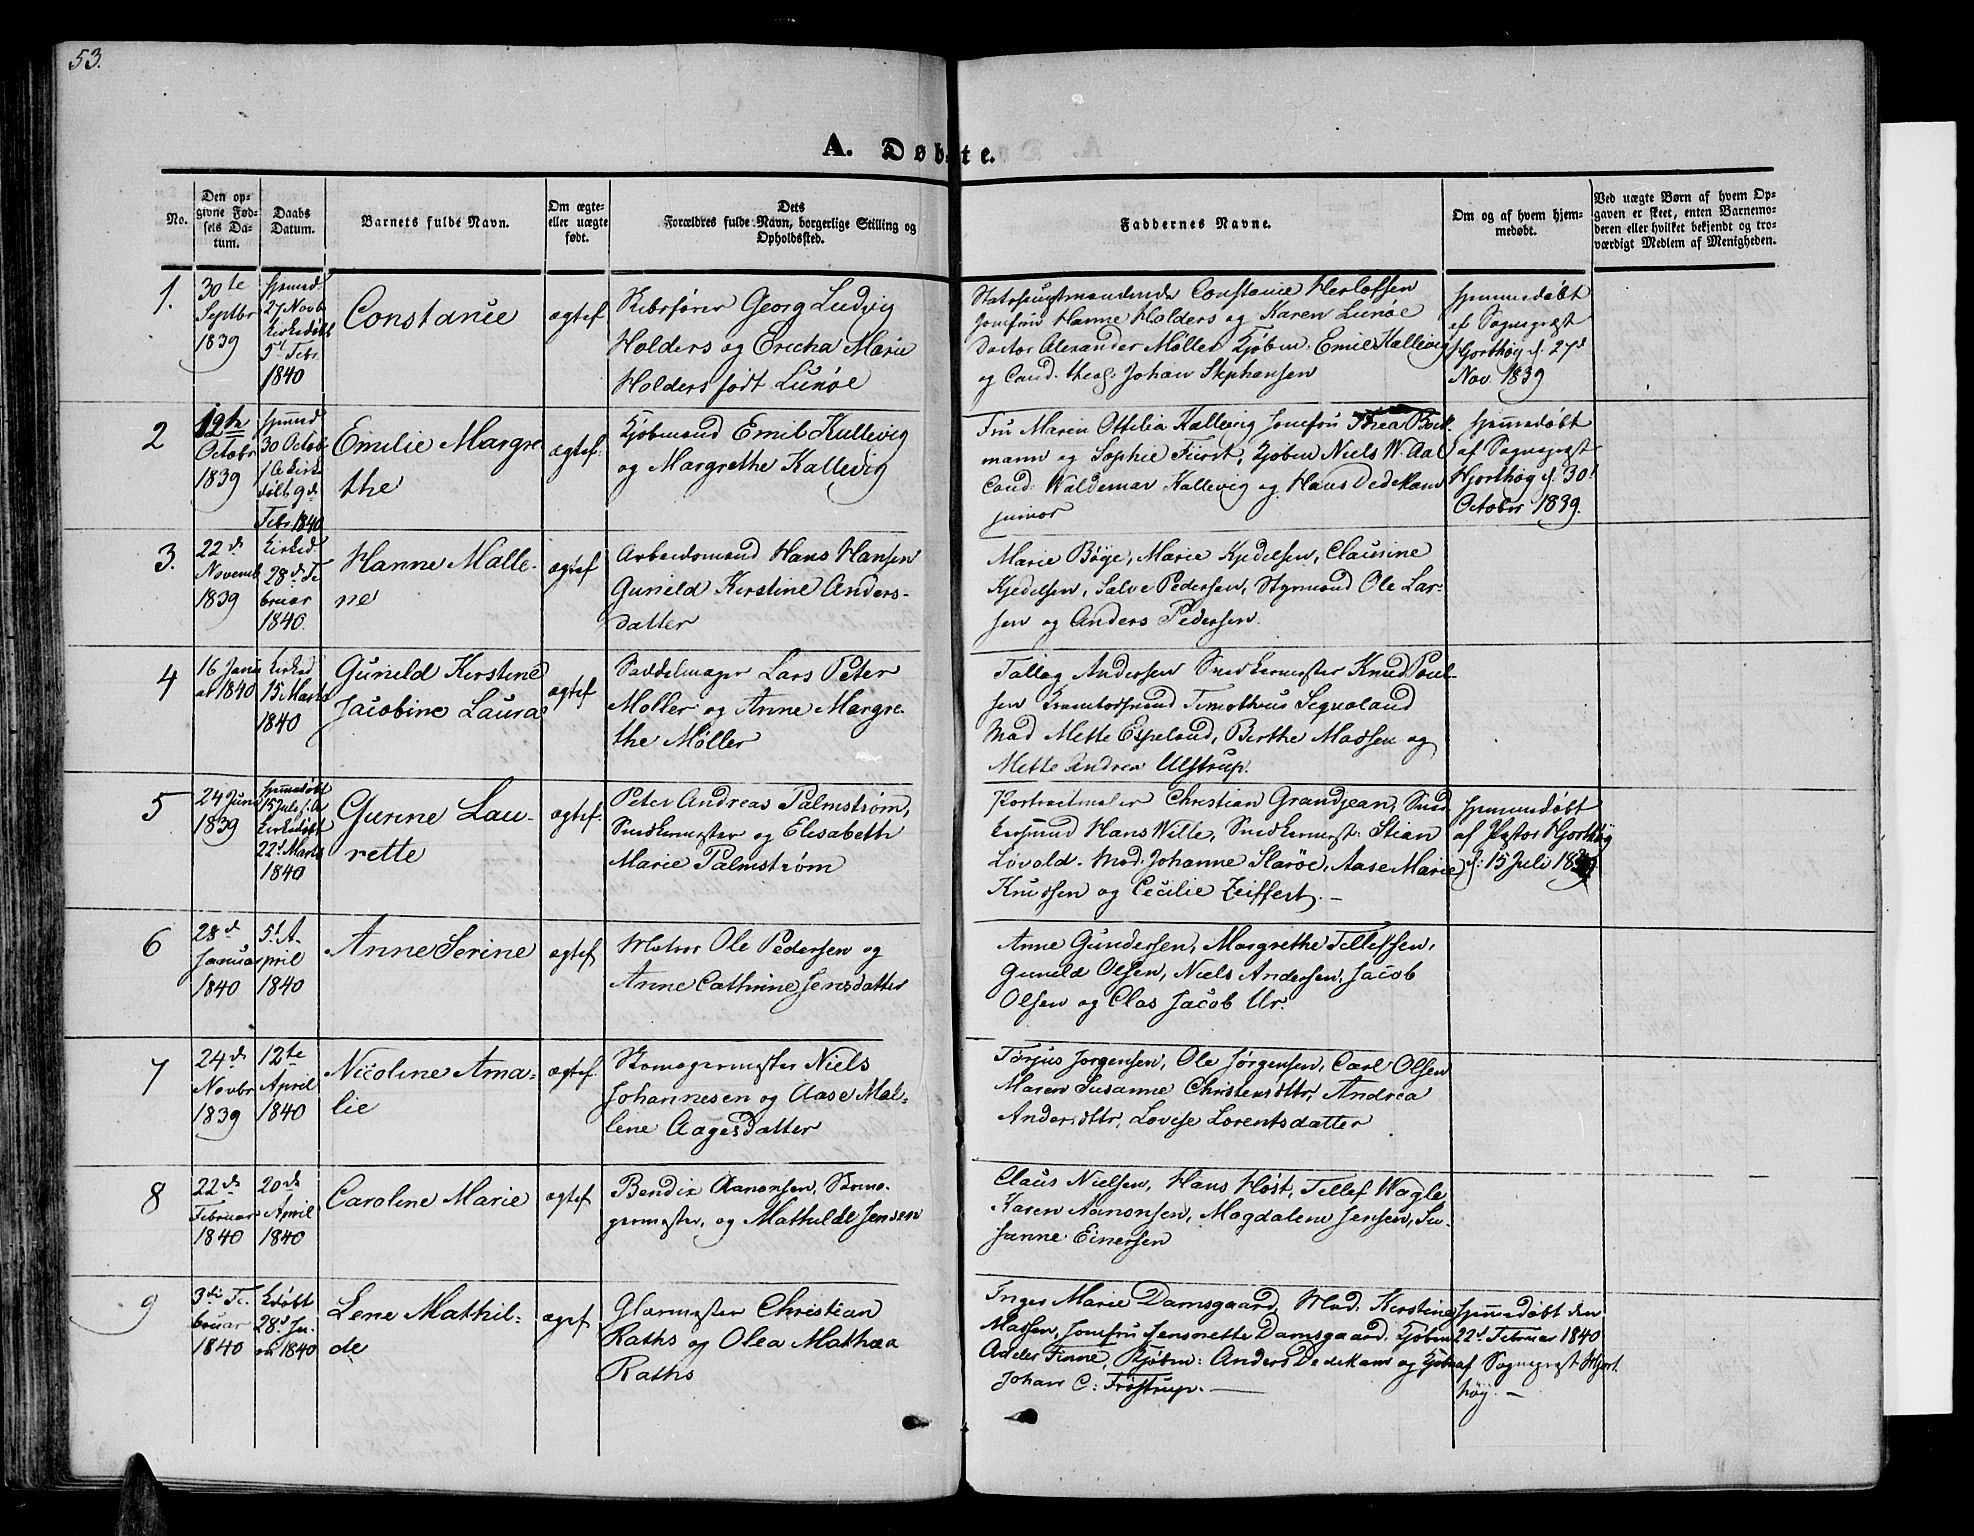 53.
A. Døbte.
No.
Den opgivne Fødsels Datum.
Daabs Datum.
Barnets fulde Navn.
Om ægte- eller uægte født.
Dets Forældres fulde Navn, borgerlige Stilling og Opholdssted.
Faddernes Navne.
Om og af hvem hjemmedøbt.
Ved uægte Børn af hvem Opgaven er skeet, enten Barnemoderen eller hvilket bekjendt og troværdigt Medlem af Menigheden.
1.
30te
Septbr
1839
27 Novb
Kirkedøbt
5d Febr.
1840
Constance
ægtef
Skibsfører Georg Ludvig
Holders og Ericha Marie
Holders født Lunøe
Constance Herlofsen
Jomfru Hanne Holders og Karen Lunøe
Doctor Alexander Møller Kjøbm: Emil Kallevig
og Cand. theol: Johan Stephansen
Hjemmedøbt
af Sognepræst
Hjorthøy d. 27d
Nov 1839
2
12te
Octobr
1839
30 Octob
Kirk
døbt 9d
Febr 1840
Emilie Margre
the
ægtef.
Kjøbmand Emil Kallevig
og Margrethe Kallevig
Fru Maren Ottilia Kallevig Jomfru Thea Bock
mann og Sophie Fürst, Kjøbm Niels W. Aal
Cand: Waldemar Kallevig og Hans Dedekam
junior
Hjemmedøbt
af Sognepræst
Hjorthøy d. 30t
October 1839.
3.
22d
Novemb
1839
Kirked
28d Fe
bruar
1840.
Hanne Malle-
ne
ægtef
Arbeidsmand Hans Hansen
Gunild Kirstine Anders-
datter
Marie Bøye, Marie Kjedelsen, Clausine
Kjedelsen, Salve Pedersen, Styrmand Ole Lar-
sen og Anders Pedersen.
4
16 Janu
ar 1840
Kirked
15 Marts
1840
Gunild Kirstine
Jacobine Laura
ægtef
Saddelmager Lars Peter
Møller og Anne Margre-
the Møller
Tallag Andersen Snedkermester Knud Poul-
sen Timotheus Segnoland
Mad Mette Espeland, Birthe Madsen og
Mette Andrea Ulstrup.
5
24 Juni
1839
Hjemmedøbt
15 Juli
Kirkedøbt
22d Marts
1840
Gurine Lau-
rette
ægtef.
Peter Andreas Palmstrøm,
Snedkermester og Elisabeth
Marie Palmstrøm
Portraitmaler Christian Grandjean, Sned
kersvend Hans Wille, Snedkermest: Stian
Lovold. Mad. Johanne Slarøe, Aase Marie
Knudsen og Cecilie Zeiffert.
Hjemmedøbt
af Pastor Hjorthøy
d: 15 Juli 1839
6
28d
Januar
1840
5t A-
pril
1840
Anne Serine
ægtef
Matros Ole Pedersen og
Anne Cathrine Jensdatter
Anne Gundersen, Margrethe Tellefsen,
Gunild Olsen, Niels Andersen, Jacob
Olsen og Clas Jacob Ur.
7
24d
Novbr
1839
12te
April
1840
Nicoline Ama-
lie
ægtef.
Skomagermester Niels
Johannesen og Aase Mal-
lene Aagesdatter
Torjus Jørgensen, Ole Jørgensen, Carl Olsen
Maren Susanne Christensdttr, Andrea
Andersdttr, Lovise Lorentsdatter
8
22de
Februar
1840
20de
April
1840
Caroline Marie
ægtef.
Bendix Aanonsen, Skoma-
germester, og Mathilde Jensen
Claus Nielsen, Hans Høst, Tellef Wagle
Karen Aanonsen, Magdalene Jensen, Su-
sanne Einersen
9
3die Fe-
bruar
1840
Kdøbt
28d Ju-
ni 1840
Lene Mathil-
de
ægtf.
Glarmester Christian
Raths og Olea Mathea
Raths
Inger Marie Damsgaard, Mad. Kirstine
Madsen, Jomfru Jensinette Damsgaard, Kjøbm
Adeler Finne, Kjøbm: Anders Dedekam og Kjøbm
Johan C: Frøstrup.
Hjemmedøbt den
22d Februar 1840
af Sognepræst Hjort
høy.